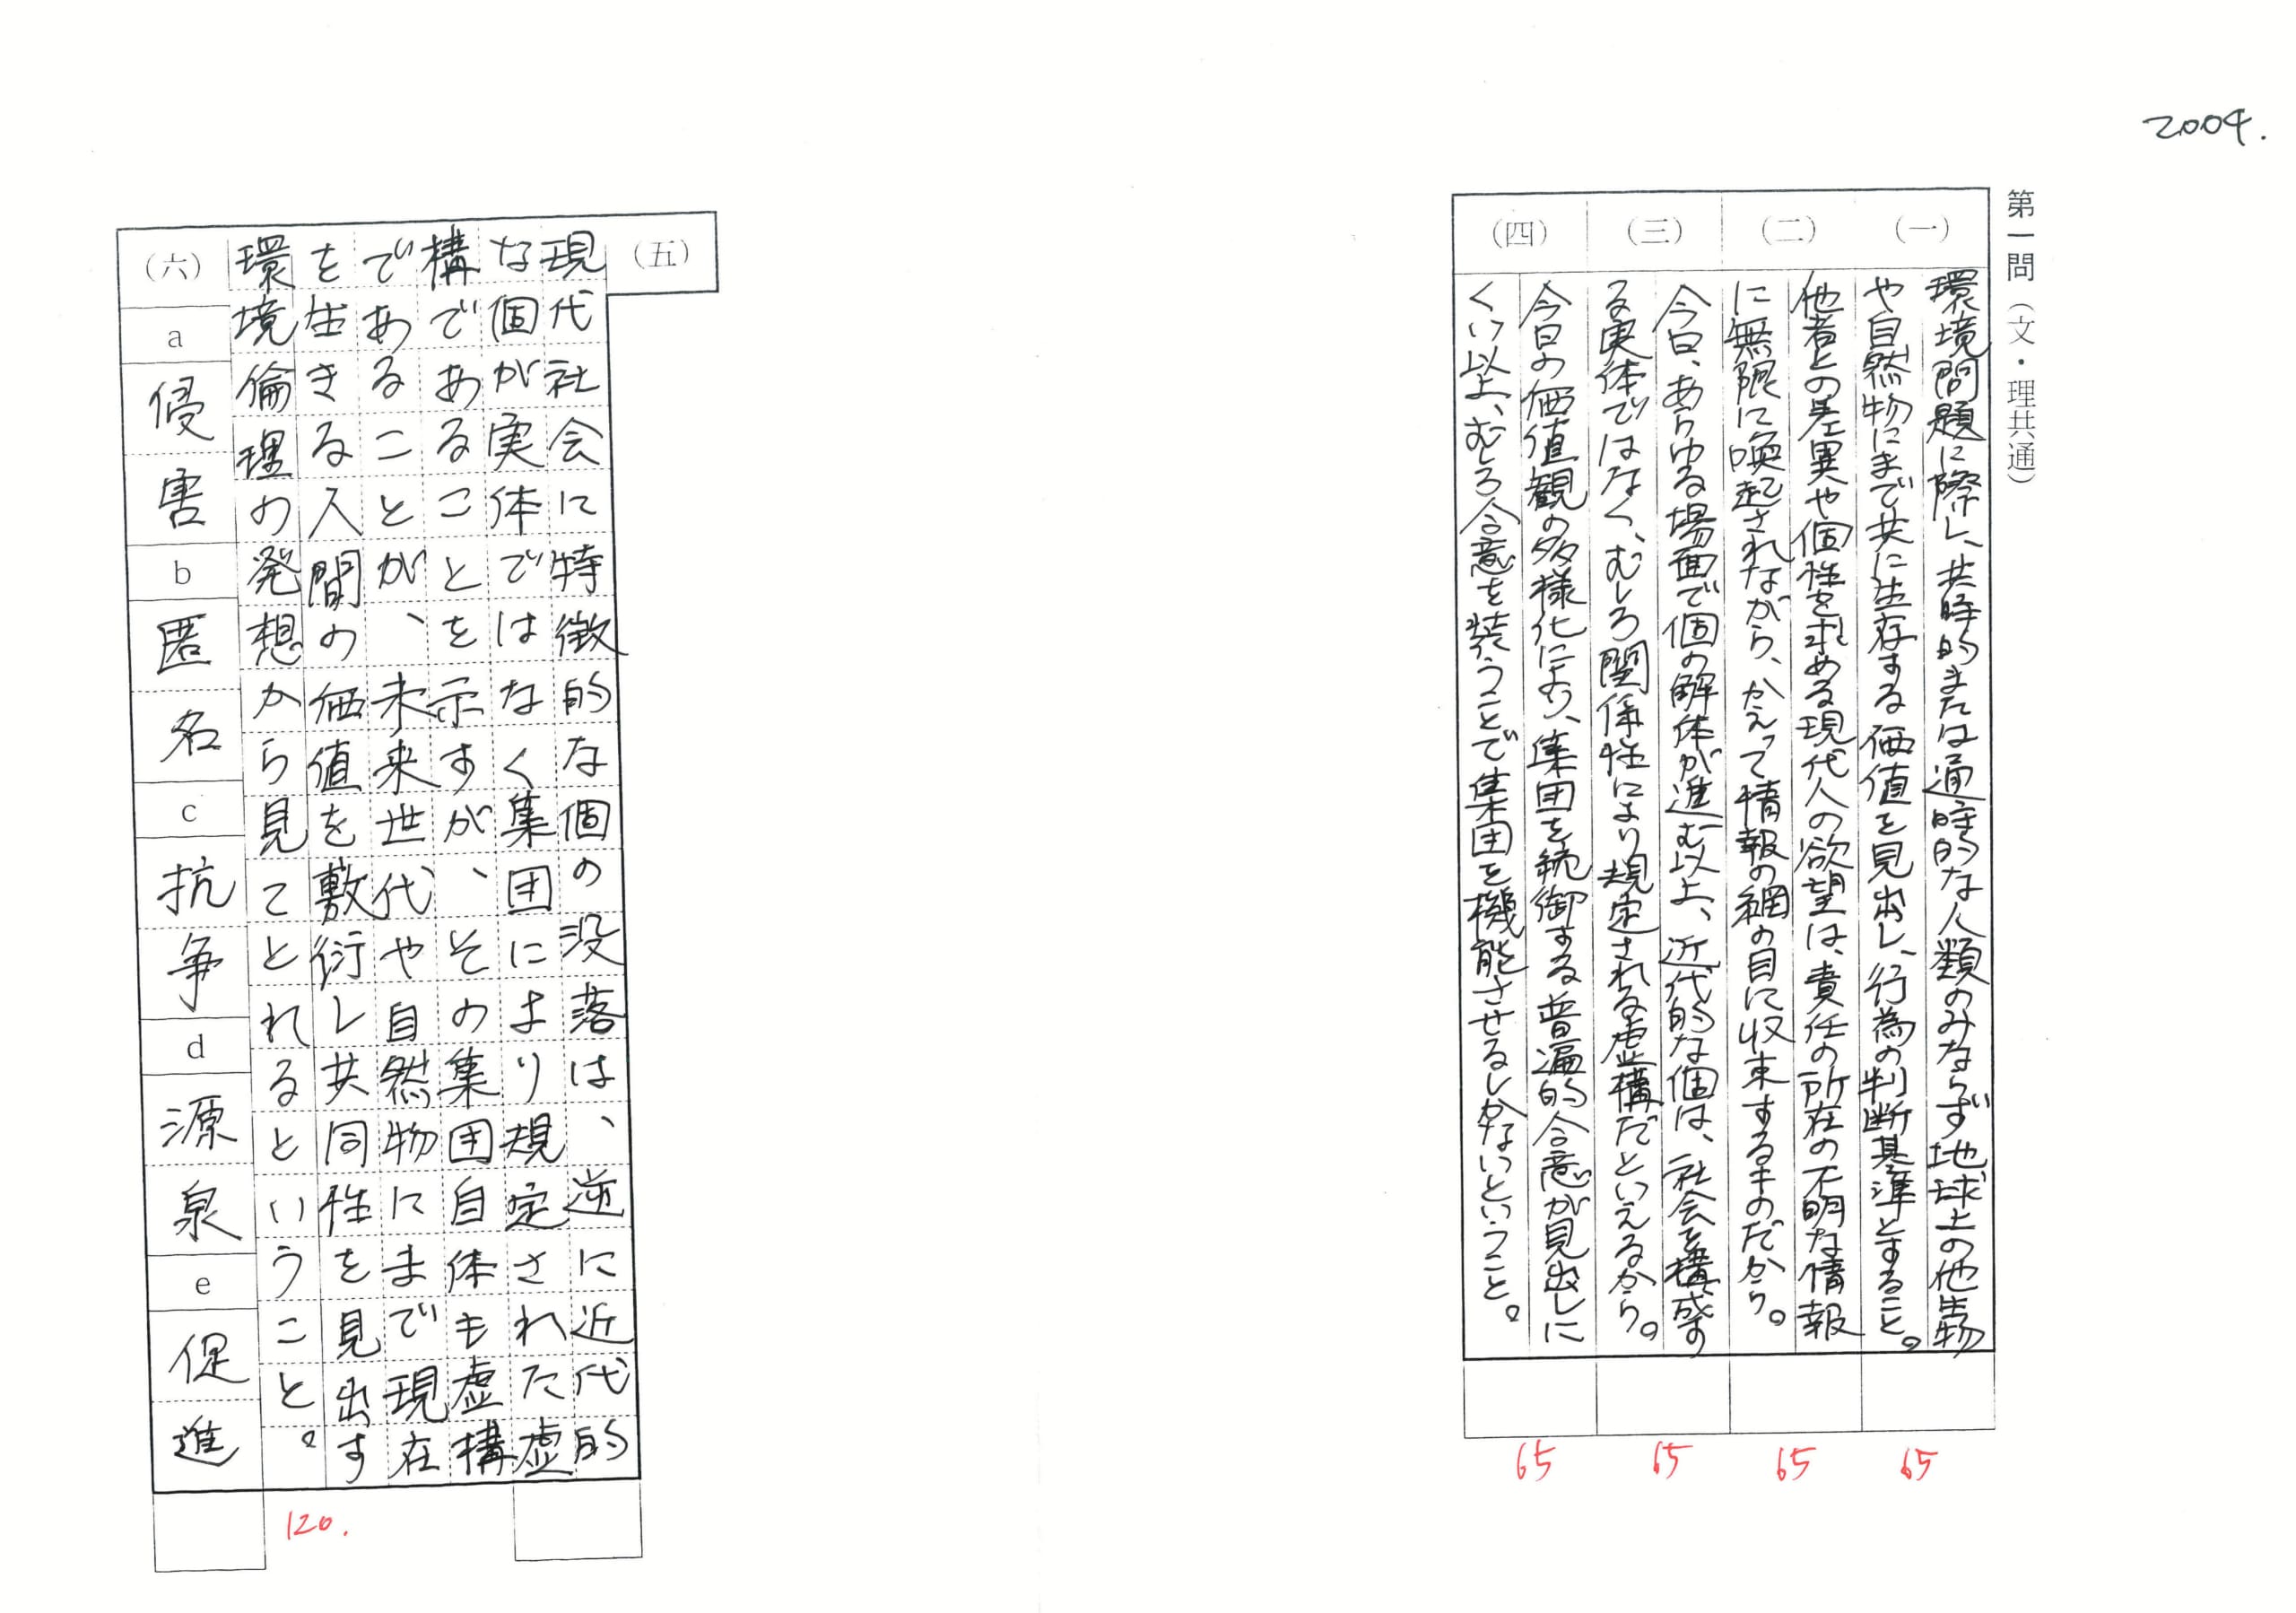 2004.
第一問（文・理共通）
（一）
環境問題に際し、共時的または通時的な人類のみならず地球上の他生物
や自然物にまで共に生存する価値を見出し、行為の判断基準とすること。
（二）
他者との差異や個性を求める現代人の欲望は、責任の所在の不明な情報
に無限に喚起されながら、かえって情報の網の目に収束するものだから。
（三）
今日、あらゆる場面で個の解体が進む以上、近代的な個は、社会を構成す
る実体ではなく、むしろ関係性により規定される虚構だといえるから。
（四）
今日の価値観の多様化により、集団を統御する普遍的合意が見出しに
くい以上、むしろ合意を装うことで集団を機能させるしかないということ。
65
65
65
65
（五）
現代社会に特徴的な個の没落は、逆に近代的
な個が実体ではなく集団により規定された虚
構であることを示すが、その集団自体も虚構
であることが、未来世代や自然物にまで現在
を生きる人間の価値を敷衍し共同性を見出す
環境倫理の発想から見てとれるということ。
120.
（六）
a
侵害
b
匿名
c
抗争
d
源泉
e
促進